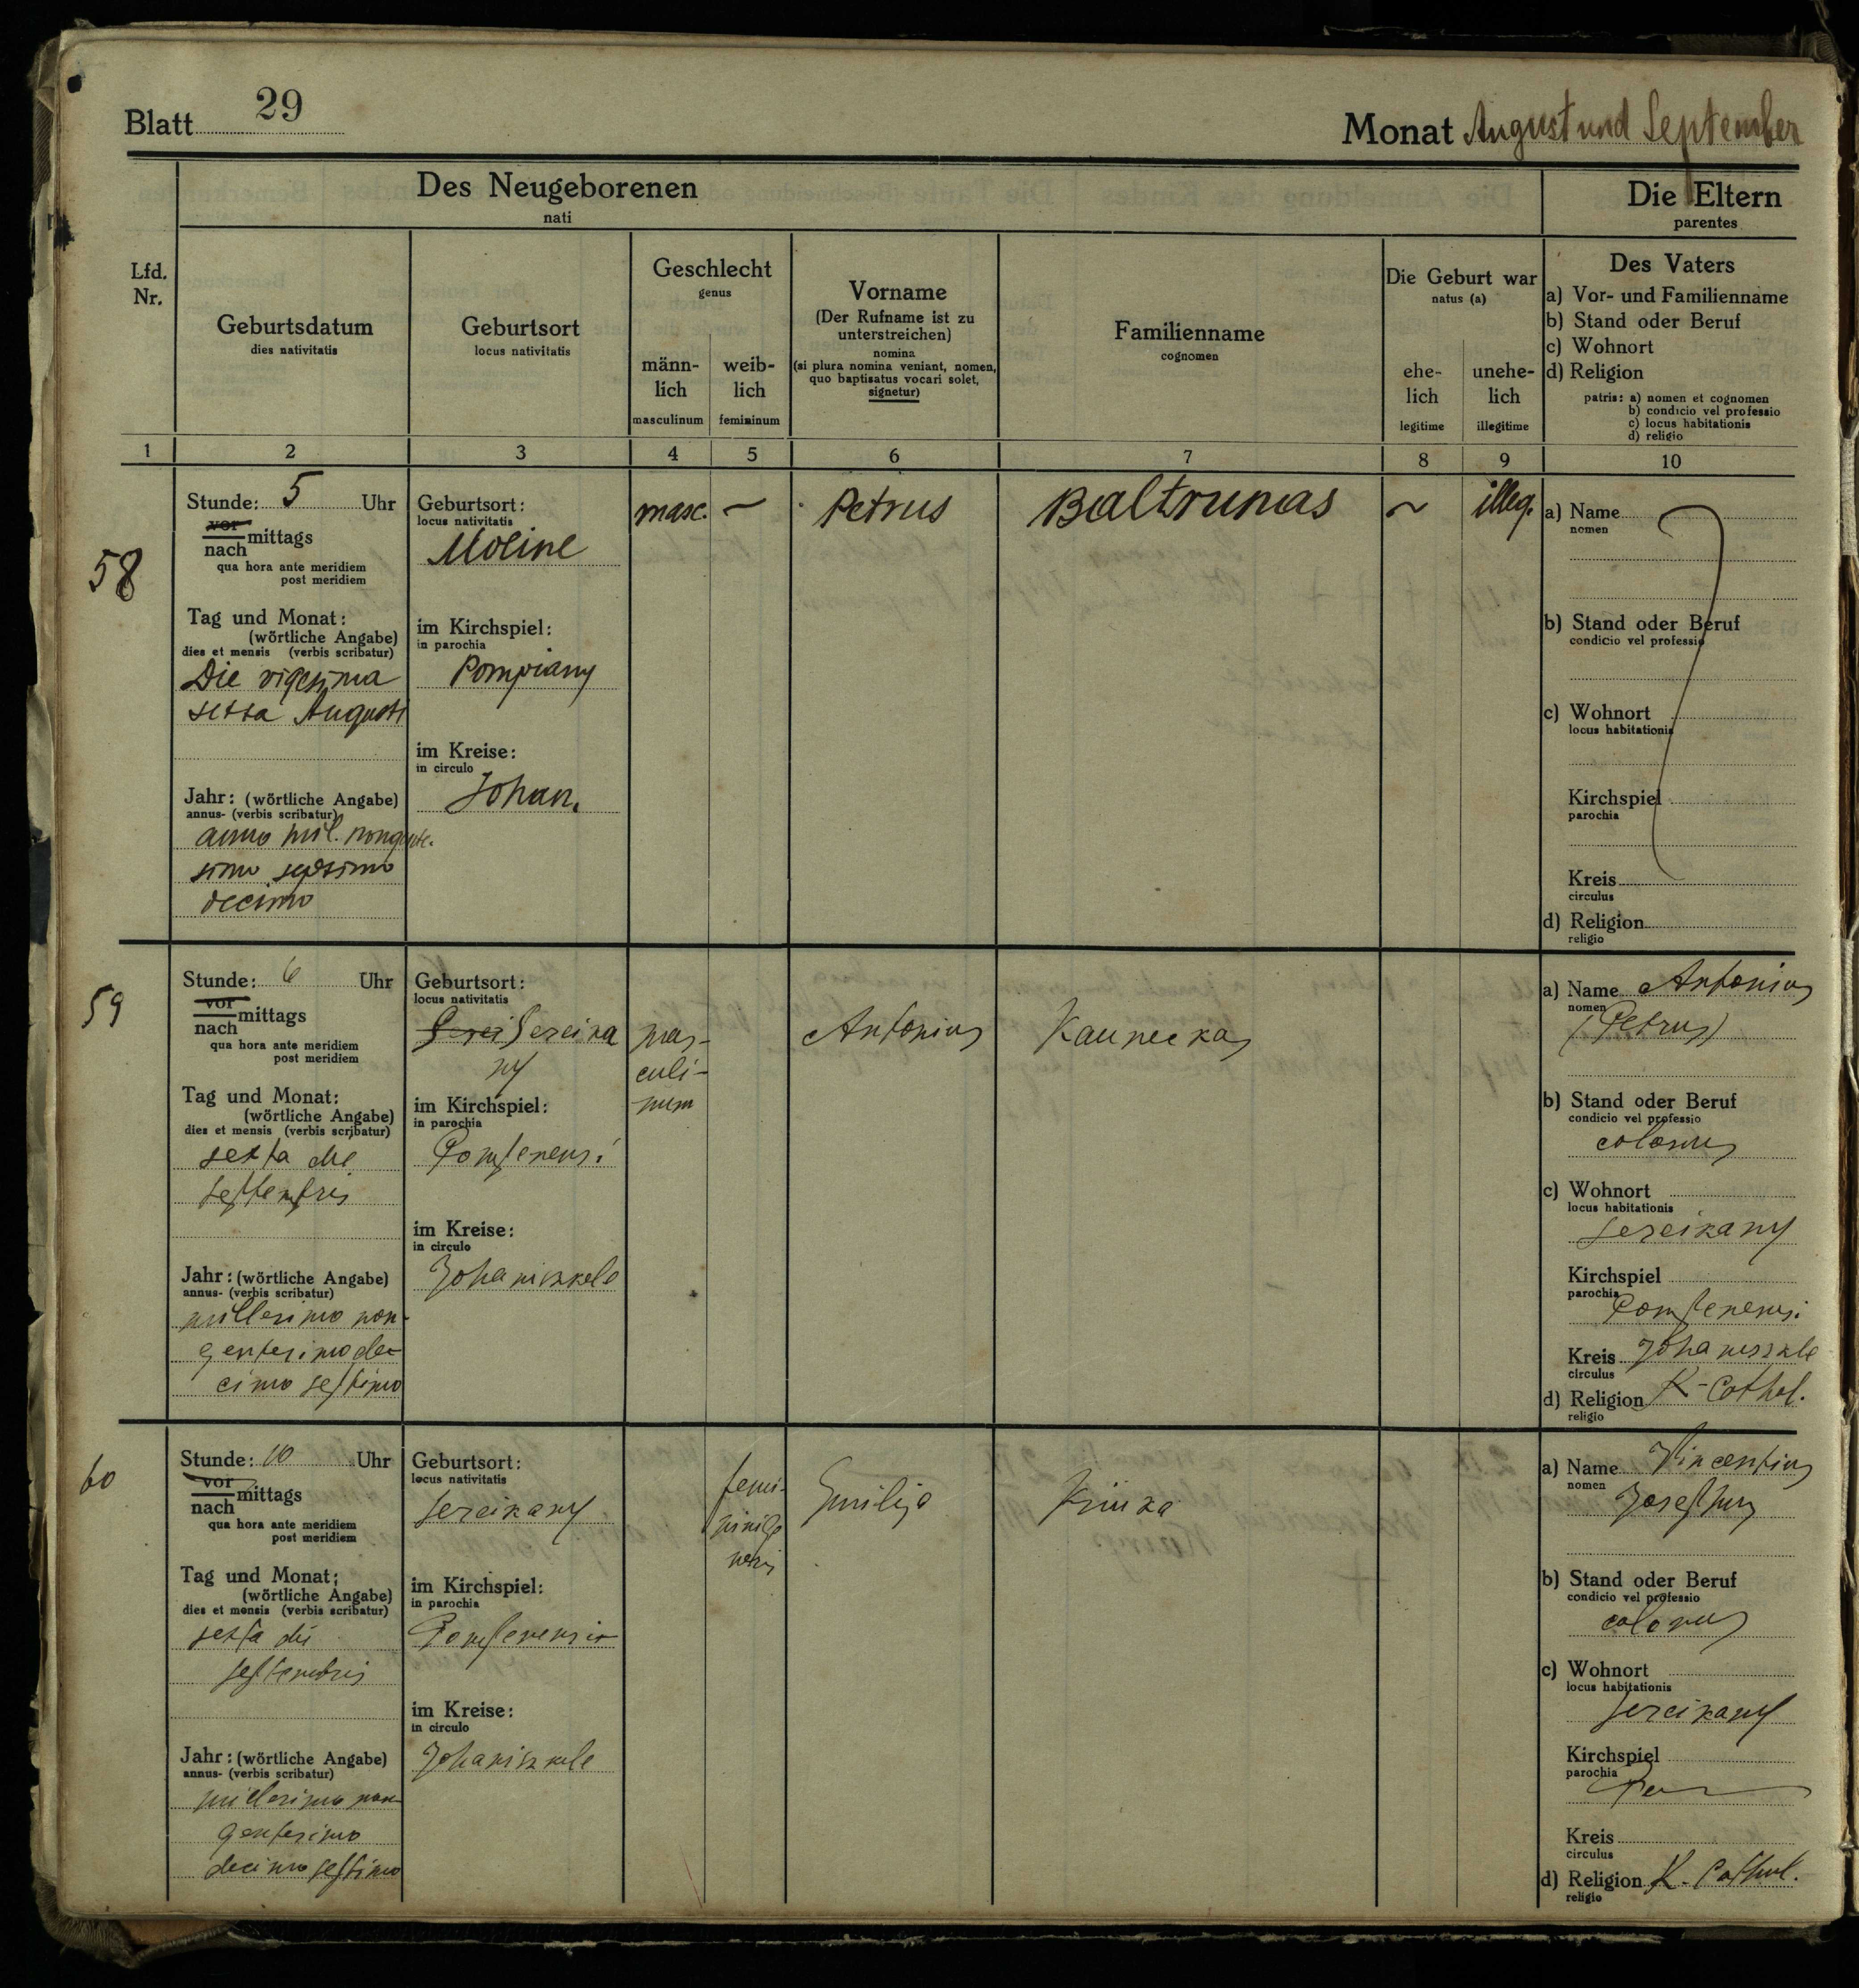 Blatt 29
Monat August und September
Des Neugeborenen
nati
Die Eltern
parentes
Lfd.
Nr.
Geburtsdatum
dies nativitatis
Geburtsort
locus nativitatis
Geschlecht
genus
männ-
lich
masculinum
weib-
lich
femininum
Vorname
(Der Rufname ist zu
unterstreichen)
nomina
(si plura nomina veniant, nomen,
quo baptisatus vocari solet,
signetur)
Familienname
cognomen
Die Geburt war
natus (a)
ehe-
lich
legitime
unehe-
lich
illegitime
Des Vaters
a) Vor- und Familienname
b) Stand oder Beruf
c) Wohnort
d) Religion
patris: a) nomen et cognomen
b) condicio vel professio
c) locus habitationis
d) religio
1 2 3 4 5 6 7 8 9 10
58
Stunde: 5 Uhr
vor
nach mittags
qua hora ante meridiem
post meridiem
Tag und Monat:
(wörtliche Angabe)
dies et mensis (verbis scribatur)
Die vigesima
sexta Augusti
Jahr: (wörtliche Angabe)
annus- (verbis scribatur)
anno mil. nongente-
simo septimo
decimo
Geburtsort:
locus nativitatis
Moline
im Kirchspiel:
in parochia
Pompiany
im Kreise:
in circulo
Johan.
masc. –
Petrus
Baltrunas
~ illeg.
a) Name
nomen
b) Stand oder Beruf
condicio vel professio
c) Wohnort
locus habitationis
Kirchspiel
parochia
Kreis
circulus
d) Religion
religio
59
Stunde: 6 Uhr
vor
nach mittags
qua hora ante meridiem
post meridiem
Tag und Monat:
(wörtliche Angabe)
dies et mensis (verbis scribatur)
sexta die
septembris
Jahr: (wörtliche Angabe)
annus- (verbis scribatur)
millesimo non-
gentesimo de-
cimo septimo
Geburtsort:
locus nativitatis
Sereika
ny
im Kirchspiel:
in parochia
Pompenensi
im Kreise:
in circulo
Johaniszkele
mas-
culi-
num
Antonius
Kauneckas
a) Name Antonius
nomen
(Petrus)
b) Stand oder Beruf
condicio vel professio
colonus
c) Wohnort
locus habitationis
Sereikany
Kirchspiel
parochia
Pompenensi
Kreis Johaniszkle
circulus
d) Religion K-Cathol.
religio
60
Stunde: 10 Uhr
vor
nach mittags
qua hora ante meridiem
post meridiem
Tag und Monat:
(wörtliche Angabe)
dies et mensis (verbis scribatur)
sexta die
septembris
Jahr: (wörtliche Angabe)
annus- (verbis scribatur)
millesimo non-
gentesimo
decimo septimo
Geburtsort:
locus nativitatis
Sereikany
im Kirchspiel:
in parochia
Pompenensis
im Kreise:
in circulo
Johaniszkele
femi-
Emilija
a) Name Vincentius
nomen
Josephus
b) Stand oder Beruf
condicio vel professio
colonus
c) Wohnort
locus habitationis
Sereikany
Kirchspiel
parochia
Kreis
circulus
d) Religion K. Cathol.
religio